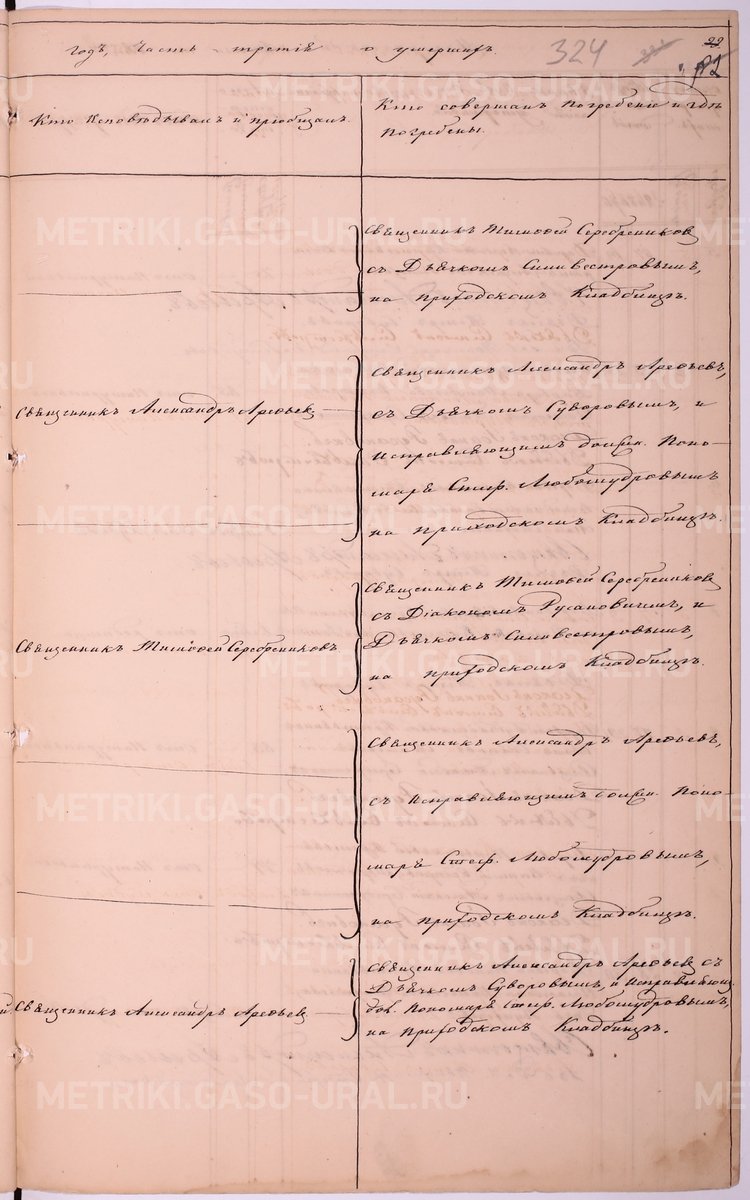 годъ, Часть третія о умершихъ.
324
Кто Исповѣдывалъ и приобщалъ.
Кто совершалъ погребеніе и гдѣ
погребены.
Священникъ Тимофей Серебрениковъ
съ Дьячкомъ Силивестровымъ,
на приходскомъ Кладбищѣ.
Священникъ Александръ Арефьевъ
Священникъ Александръ Арефьевъ,
съ Дьячкомъ Суворовымъ, и
исправляющимъ должн. Поно-
маря Стеф. Любомудровымъ
на приходскомъ Кладбищѣ.
Священникъ Тимофей Серебрениковъ
Священникъ Тимофей Серебрениковъ
съ Діакономъ Русановичемъ, и
Дьячкомъ Силивестровымъ,
на приходскомъ Кладбищѣ.
Священникъ Александръ Арефьевъ,
съ исправляющимъ должн. Поно-
маря Стеф. Любомудровымъ,
на приходскомъ Кладбищѣ.
Священникъ Александръ Арефьевъ
Священникъ Александръ Арефьевъ съ
Дьячкомъ Суворовымъ, и исправляющ.
дол. Пономаря Стеф. Любомудровымъ,
на приходскомъ Кладбищѣ.
METRIKI.GASO-URAL.RU